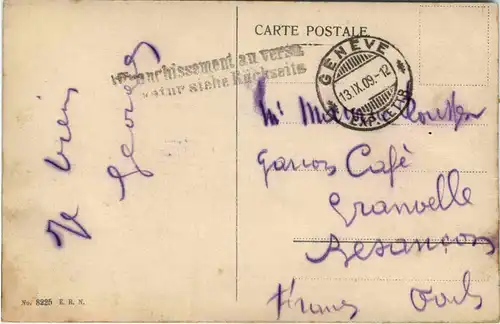 CARTE POSTALE.
Affranchissement au verso
Frankatur siehe Rückseite
GENÈVE
13.IX.09.-12
EXP. LETTR.
Je viens
Georges
Mr
Garçon Café
Granvelle
Besançon
France Doubs
No. 8225 E. R. N.